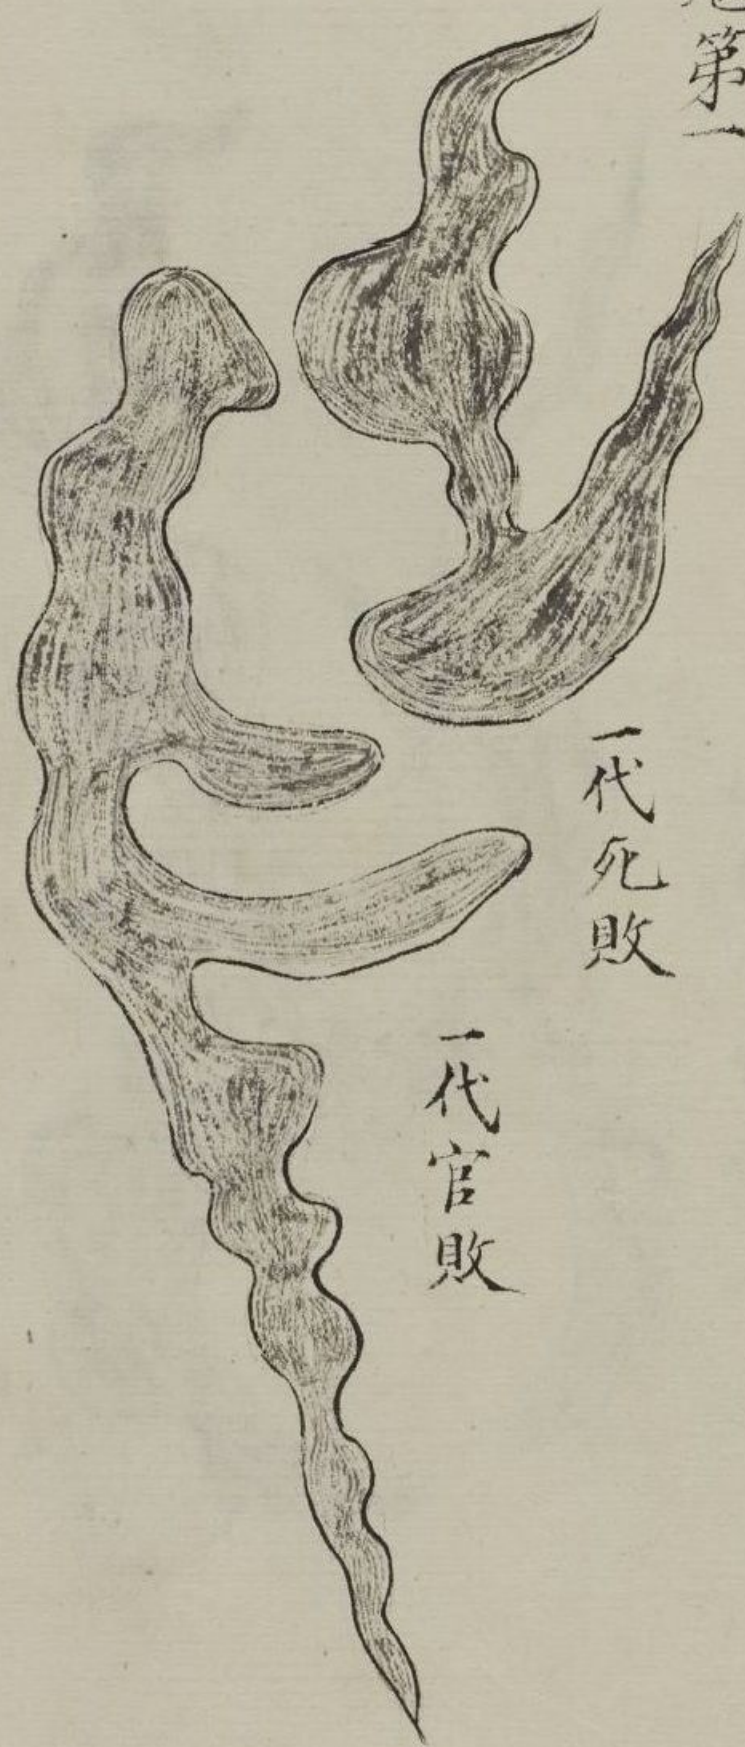 第一
一代死敗
一代官敗